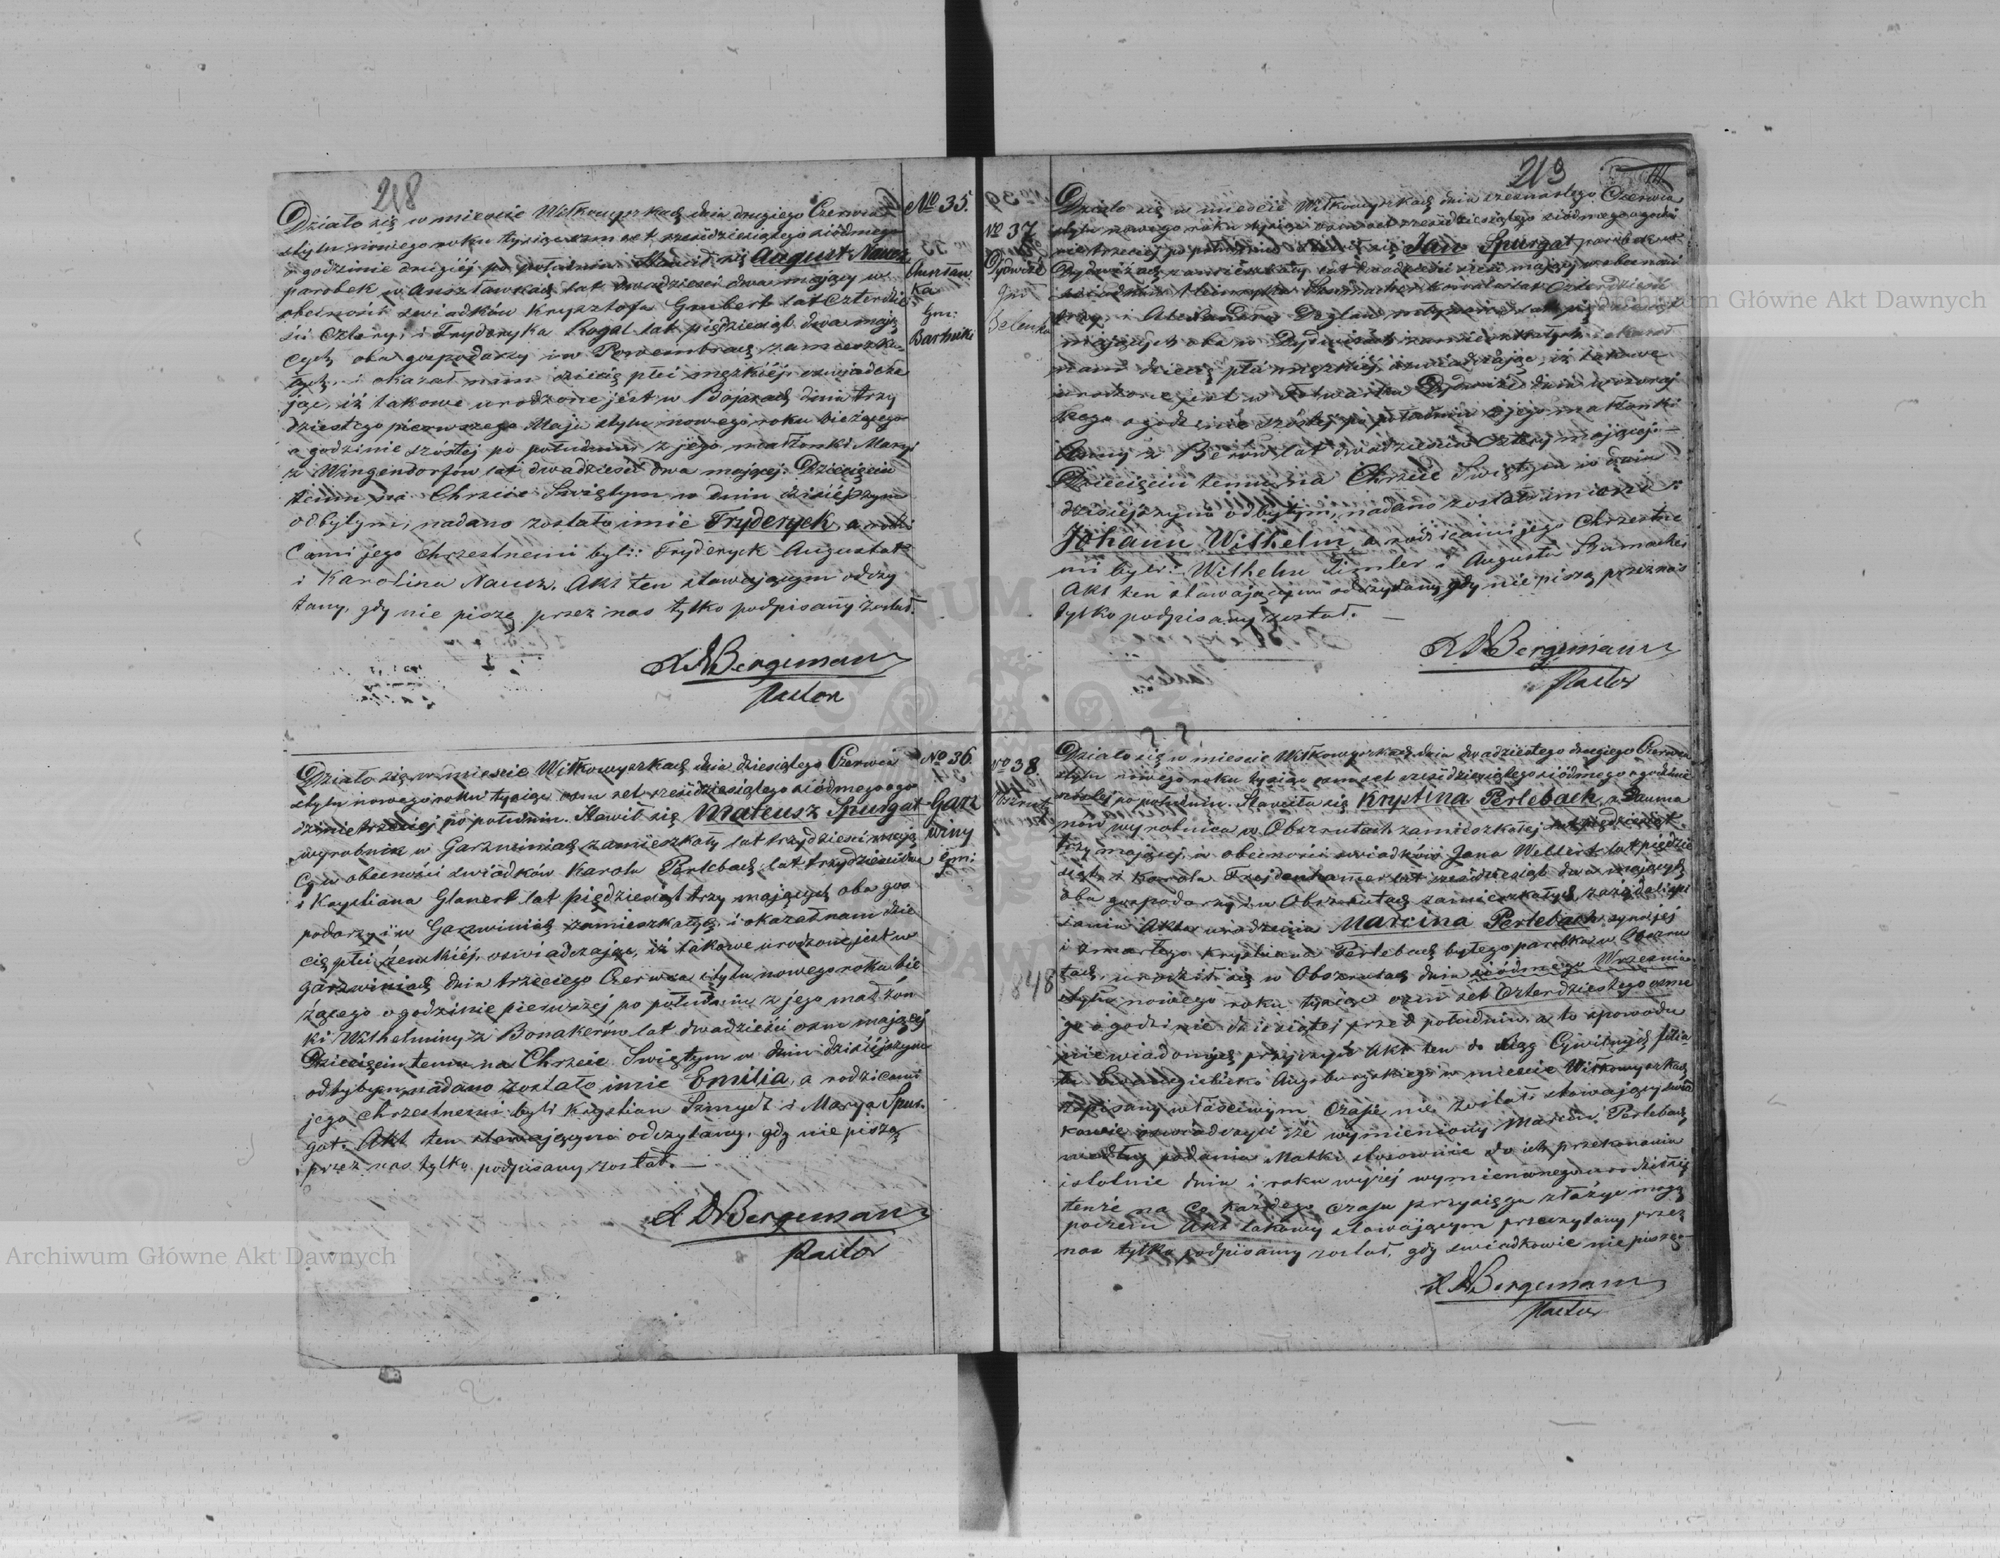 218
Działo się w mieście Wiłkowyszkach dnia drugiego Czerwca
stylu nowego roku tysiąc osm set sześćdziesiątego siódmego
o godzinie drugiéj po południu. Stawił się August Naucz
parobek w Ansztawkach lat dwadzieścia dwa mający w
obecności świadków Krysztofa Grubert lat czterdzie
ści cztery, i Fryderyka Rogal lat pięćdziesiąt dwa mają
cych oba gospodarzy i w Powembrach zamieszka-
łych, i okazał nam dziecię płci męzkiéj, oświadcza
jąc, iż takowe urodzone jest w Bojarach dnia trzy
dziestego pierwszego Maja stylu nowego roku bieżącego
o godzinie szóstej po południu z jego małżonki Maryi
z Wingendorfów lat dwadzieście dwa mającej. Dziecięciu
temu na Chrzcie Świętym w dniu dzisiéjszym
odbytym, nadano zostało imie Fryderyck, a rodzi
cami jego chrzestnemi byli: Fryderyck Augustat
i Karolina Naucz. Akt ten stawającym odczy
tany, gdy nie piszę przez nas tylko podpisany został.
A Bergemann
Pastor
No 35.
Ansztaw
ka
Gm:
Bartniki
Działo się w mieście Wiłkowyszkach dnia dziesiątego Czerwca
stylu nowego roku tysiąc osm set sześćdziesiątego siódmego o go
dzinie trzeciej po południu. Stawił się Mateusz Spurgat
wyrobnik w Garzwiniach zamieszkały lat trzydzieści mają
cy w obecności świadków Karola Perlebach lat trzydzieści dwa
i Krystiana Glanert lat pięćdziesiąt trzy mających oba gos
podarzy i w Garzwiniach zamieszkałych, i okazał nam dzie
cię płci żeńskiéj, oświadczając, iż takowe urodzone jest w
Garzwiniach dnia trzeciego Czerwca stylu nowego roku bie
żącego o godzinie pierwszej po południu z jego małżon
ki Wilhelminy z Bonakerów lat dwadzieści osm mającéj
Dziecięciu temu na Chrzcie Świętym w dniu dzisiéjszym
odbytym, nadano zostało imie Emilia, a rodzicami
jego chrzestnemi byli Krystian Szmydt i Marya Spur-
gat. Akt ten stawającymi odczytany, gdy nie piszą
przez nas tylko podpisany został.
A Bergemann
Pastor
No 36.
Garz
winy
Gm:
219
No 37.
Dydwiże
Gm
Działo się w mieście Wiłkowyszkach dnia szesnastego Czerwca
stylu nowego roku tysiąc osm set sześćdziesiątego siódmego o godzi
nie trzeciej po południu. Stawił się Jan Spurgat parobek w
Dydwiżach zamieszkały lat dwadzieścia sześć mający w obecności
świadków Heinrycha Szumacher kowala lat czterdzieści
trzy i Aleksandra młynarza lat pięćdziesiąt
mających oba w Dydwiżach zamieszkałych, i okazał
nam dziecię płci męzkiéj, oświadczając, iż takowe
urodzone jest w Folwarku Dydwiże dnia wczoraj
szego o godzinie szóstej po południu z jego małżonki
Anny z Berów lat dwadzieścia cztery mającéj.
Dziecięciu temu na Chrzcie Świętym w dniu
dzisiejszym odbytym, nadano zostało imiona
Johann Wilhelm a rodzicami jego chrzestne
mi byli: Wilhelm Zimler i Augusta Szumacher
Akt ten stawającym odczytany, gdy nie piszą przez nas
tylko podpisany został.
A Bergemann
Pastor
No 38.
Obszruty
1848
Działo się w mieście Wiłkowyszkach dnia dwudziestego drugiego Czerwca
stylu nowego roku tysiąc osm set sześćdziesiątego siódmego o godzinie
szóstej po południu. Stawiła się Krystina Perlebach, z Dauma
nów wyrobnica w Obszrutach zamieszkałej lat pięćdziesiąt
trzy mającej, w obecności świadków Jana Wellert lat pięćdzie
siąt i Karola Frejdenhamer lat sześćdziesiąt dwa mających
oba gospodarzy i w Obszrutach zamieszkałych, zażądali spi
sania Aktu urodzenia Marcina Perlebach syna jéj
i zmarłego Krystiana Perlebach byłego parobka w Obszru
tach, urodził się w Obszrutach dnia siódmego Września
stylu nowego roku tysiąc osm set czterdziestego osme
go o godzinie dziesiątej przed południem, a to z powodu
niewiadomych przyczyn Akt ten do ksiąg Cywilnych filia
łu Ewangielicko Augsburskiego w mieście Wiłkowyszkach
zapisany właściwym czasie nie został. Stawający świad
kowie oświadczyli że wymieniony Marcin Perlebach
według podania Matki stosownie do ich przekonania
istotnie dnia i roku wyżéj wymienionego urodził się
tenże na co każdego czasu przysięgę złożyć mogą
poczem Akt takowy stawającym przeczytany przez
nas tylko podpisany został, gdy świadkowie nie piszą.
A Bergemann
Pastor
Archiwum Główne Akt Dawnych
Archiwum Główne Akt Dawnych